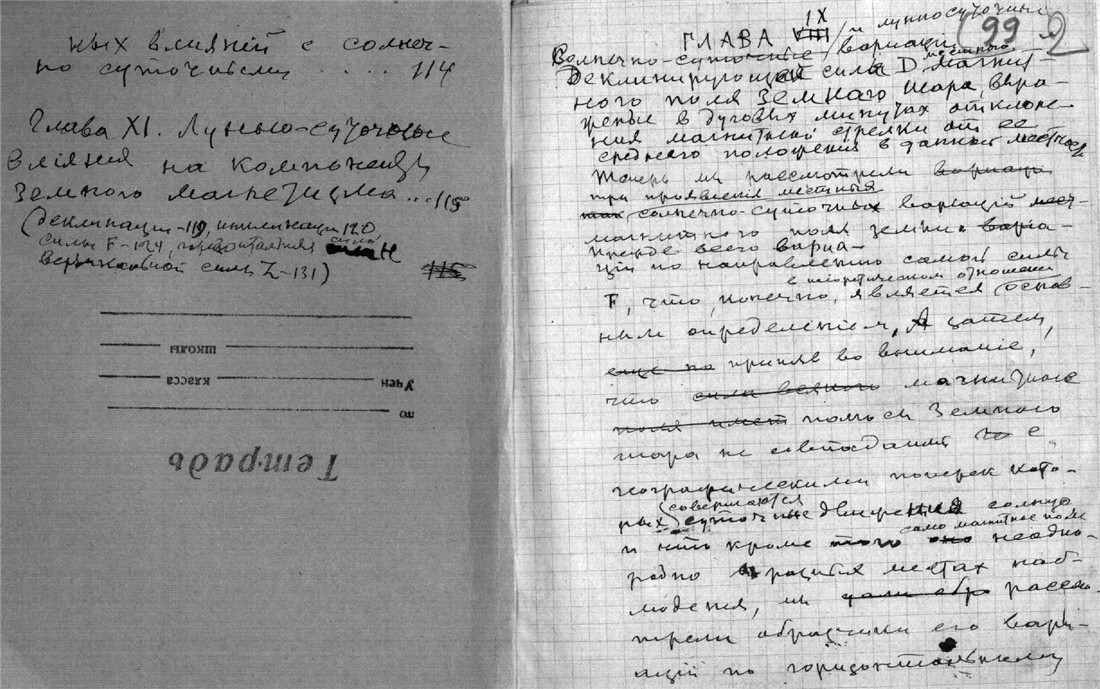 ных влияний с солнеч-
но суточными .... 114
Глава XI. Лунно-суточные
влияния на компоненты
земного магнетизма ... 115
(деклинации - 119, инклинации 120
силы F-124, горизонтальная сила H
вертикальной силы Z-131)
115
по
Учен класса
школы
Тетрадь
99 2
IX
ГЛАВА VIII
и лунносуточные
Солнечно-суточные вариации
местного
Деклинирующей силы D магнит-
ного поля Земного шара, выра-
женные в дуговых минутах отклоне-
ния магнитной стрелки от ее
среднего положения в данной местности
Теперь мы рассмотрели вариации
при проявлении местных
так солнечно-суточных вариаций мест-
магнитного поля земли вариа-
прежде всего вариа-
ций по направлению самой силы
в теоретическом отношении
F, что, конечно, является основ-
ным определением, А затем,
еще но приняв во внимание,
что сила всякого магнитного
поля имет полюсы Земного
шара не совпадают с
географическими поперек кото-
(совершаются
рых) суточные движения солнца
само магнитное поле
и что кроме того оно неодно-
родно в разных местах наб-
людения, мы дали обр рассмо-
трели образчики его вари-
аций по горизонтальному